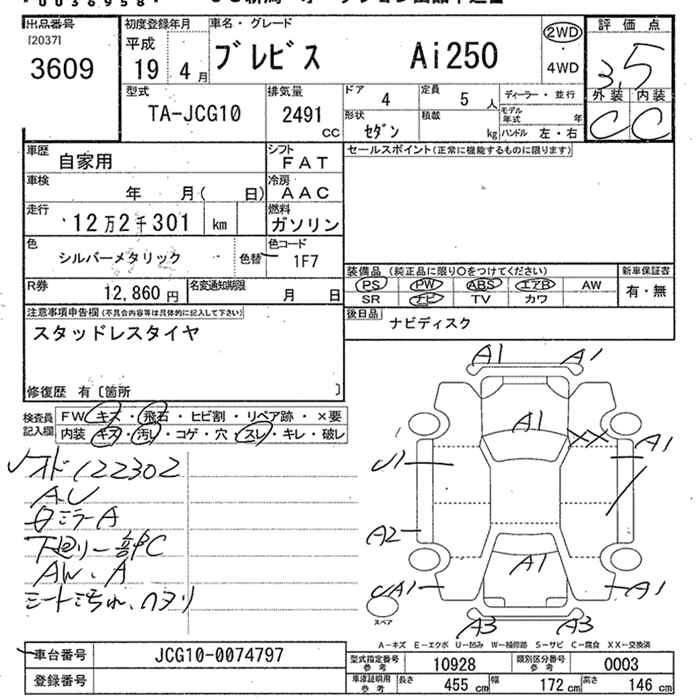 出品番号
[2037]
3609
初度登録年月
平成
19年 4月
車名・グレード
ブレビス Ai250
2WD
・
4WD
評価点
3.5
外装 内装
C C
型式
TA-JCG10
排気量
2491
CC
ドア 4
定員 5 人
形状 セダン
積載 kg
ディーラー・並行
モデル年式 年
ハンドル 左・右
車歴 自家用
シフト FAT
車検 年 月( 日)
冷房 AAC
走行 12万2千301 km
燃料 ガソリン
色 シルバーメタリック 色替
色コード 1F7
R券 12,860円
名変通知期限 月 日
セールスポイント(正常に機能するものに限ります)
装備品 (純正品に限り○をつけてください)
PS PW ABS エアB AW
SR ナビ TV カワ
新車保証書
有・無
後日品 ナビディスク
注意事項申告欄(不具合内容等は具体的に記入して下さい)
スタッドレスタイヤ
修復歴 有〔箇所 〕
検査員記入欄
FW キズ・飛石・ヒビ割・リペア跡・×要
内装 キズ・汚れ・コゲ・穴・スレ・キレ・破レ
オド122302
AU
ミラーA
下廻り一部C
AW.A
シート汚れ、ヘタリ
A1 A1
A1
XX
A1
U1
A2
A1
A1
A1
A3 A3
スペア
A-キズ E-エクボ U-凹み W-補修跡 S-サビ C-腐食 XX-交換済
車台番号 JCG10-0074797
登録番号
型式指定番号 参考 10928
類別区分番号 参考 0003
車庫証明用 参考 長さ 455 cm 幅 172 cm 高さ 146 cm